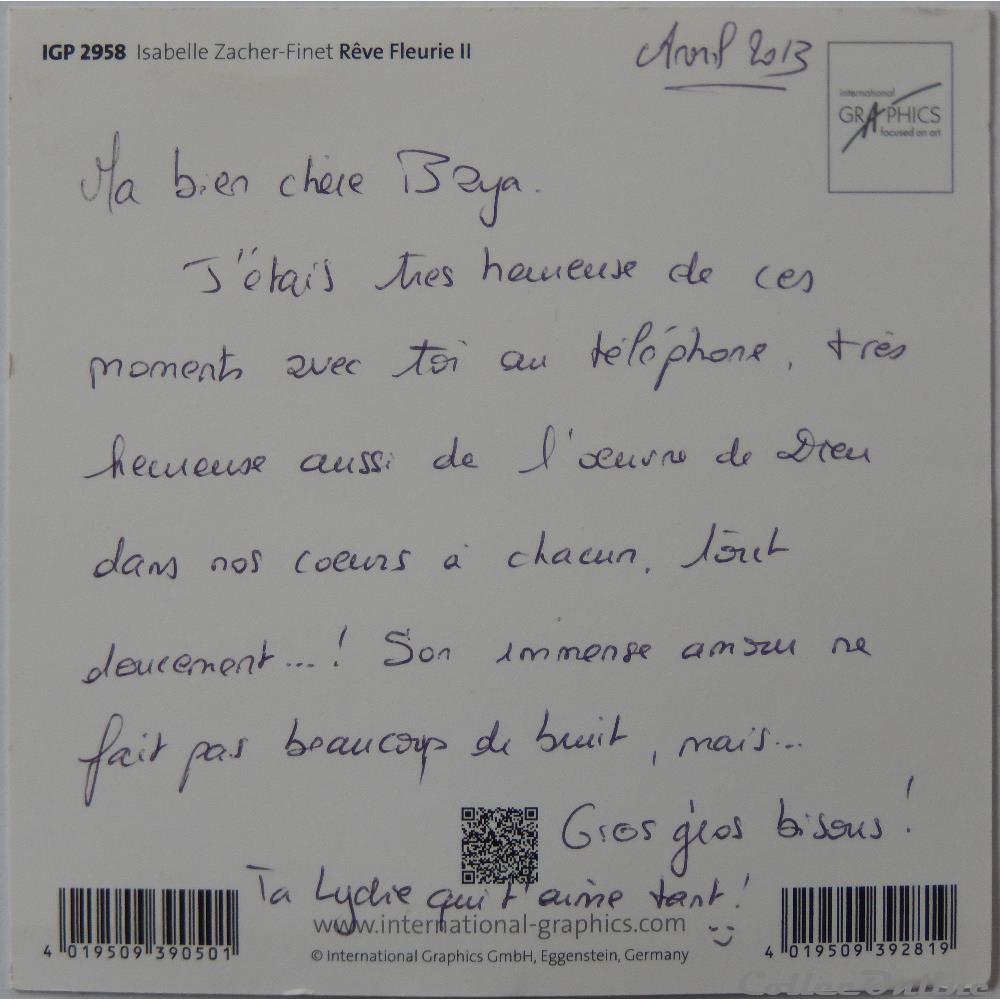 IGP 2958 Isabelle Zacher-Finet Rêve Fleurie II
Avril 2013
international
GRAPHICS
focused on art
Ma bien chère Beya.
J'étais très heureuse de ces
moments avec toi au téléphone, très
heureuse aussi de l'œuvre de Dieu
dans nos coeurs à chacun, tout
doucement...! Son immense amour ne
fait pas beaucoup de bruit, mais...
Gros gros bisous!
Ta Lydie qui t'aime tant!
www.international-graphics.com
© International Graphics GmbH, Eggenstein, Germany
4 019509 390501
4 019509 392819
CollecOnline